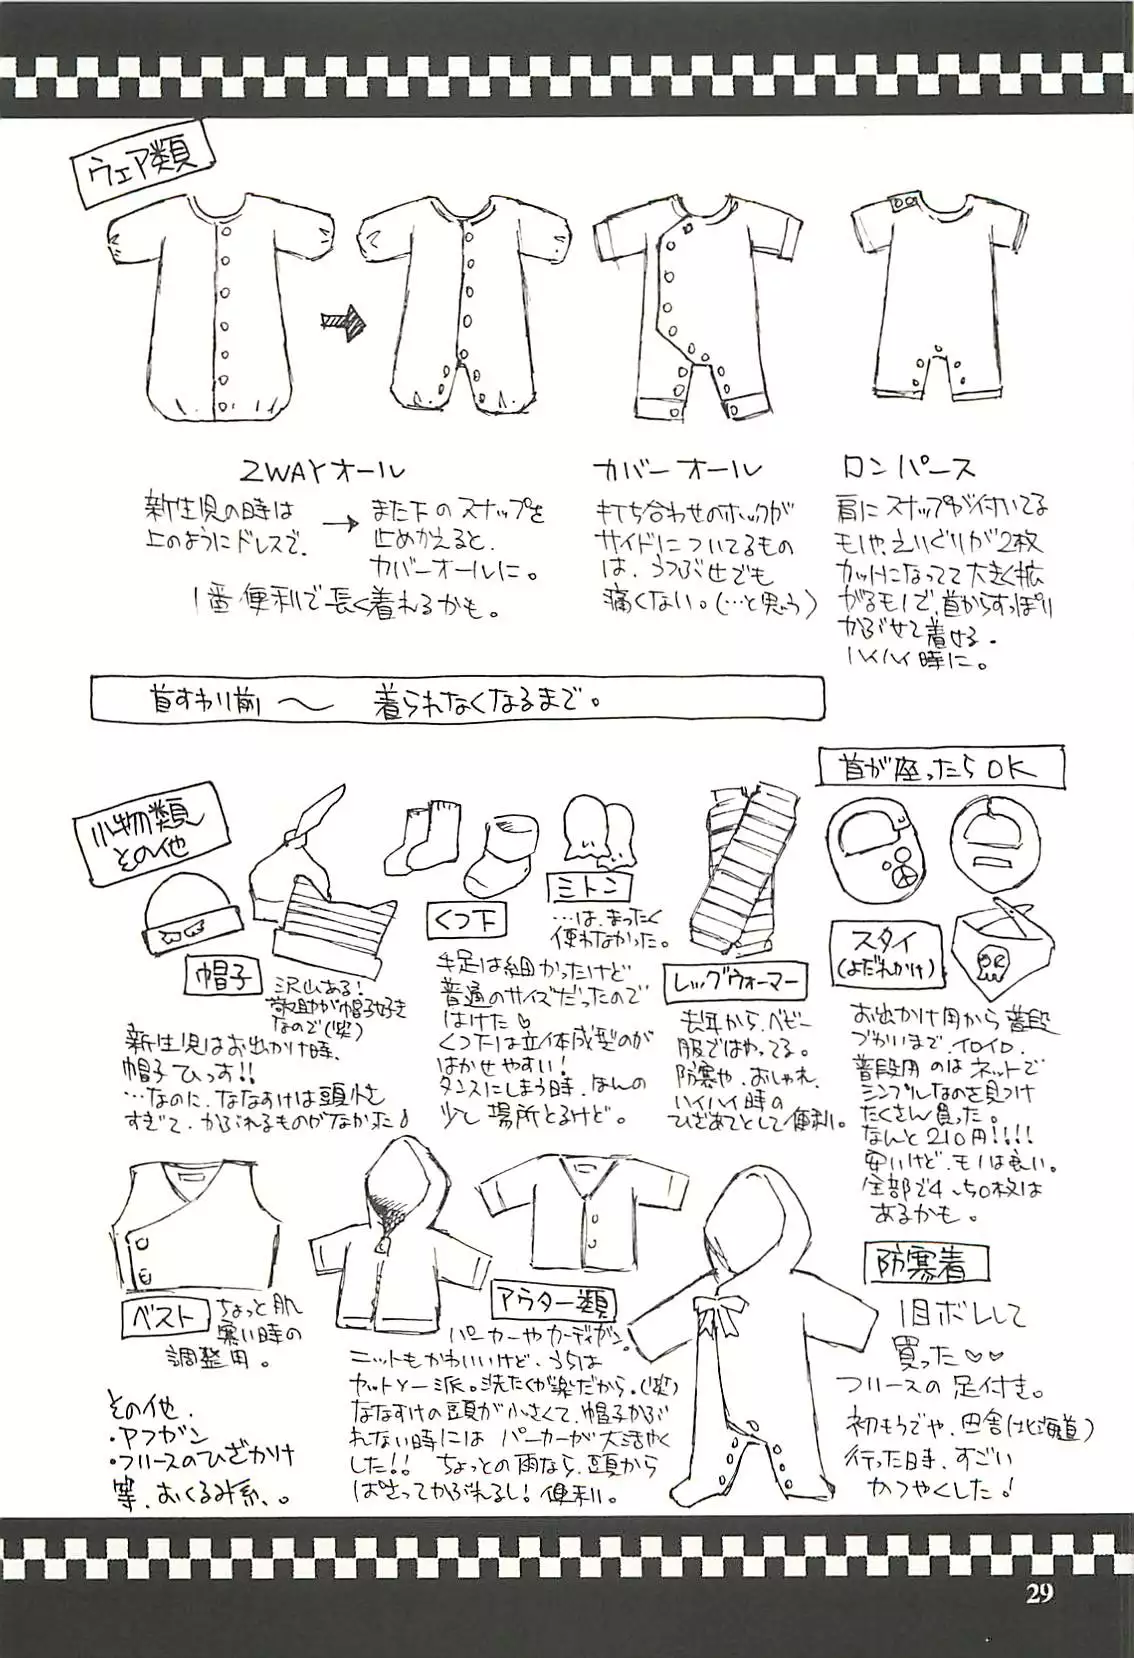 ウェア類
2WAYオール
新生児の時は
上のようにドレスで、
→
また下のスナップを
止めかえると、
カバーオールに。
1番便利で長く着れるかも。
カバーオール
打ち合わせのホックが
サイドについてるもの
は、うつぶせでも
痛くない。(…と思う)
ロンパース
肩にスナップが付いてる
モノや、えいぐりが2枚
カットになってて大きく拡
がるモノで、首からすっぽり
かぶせて着せる。
ハイハイ時に。
首すわり前 〜 着られなくなるまで。
小物類
その他
帽子
沢山ある!
敬助が帽子好き
なので(笑)
新生児はお出かけ時、
帽子ひっす!!
…なのに、ななすけは頭小さ
すぎて、かぶれるものがなかった♪
くつ下
手足は細かったけど
普通のサイズだったので
はけた♡
くつ下は立体成型のが
はかせやすい!
タンスにしまう時、ほんの
少し場所とるけど。
ミトン
…は、まったく
使わなかった。
レッグウォーマー
去年から、ベビー
服ではやってる。
防寒や、おしゃれ、
ハイハイ時の
ひざあてとして便利。
首が座ったらOK
スタイ
(よだれかけ)
お出かけ用から普段
づかいまで、イロイロ。
普段用のはネットで
シンプルなのを見つけ
たくさん買った。
なんと210円!!!!
安いけど、モノは良い。
全部で4、50枚は
あるかも。
ベスト
ちょっと肌
寒い時の
調整用。
その他、
・アフガン
・フリースのひざかけ
等、おくるみ系、。
アウター類
パーカーやカーディガン。
ニットもかわいいけど、うちは
カットソー派。洗たくが楽だから。(笑)
ななすけの頭が小さくて、帽子かぶ
れない時にはパーカーが大活やく
した!! ちょっとの雨なら、頭から
ぱさってかぶれるし!便利。
防寒着
1目ボレして
買った♡♡
フリースの足付き。
初もうでや、田舎(北海道)
行った時、すごい
かつやくした!
29